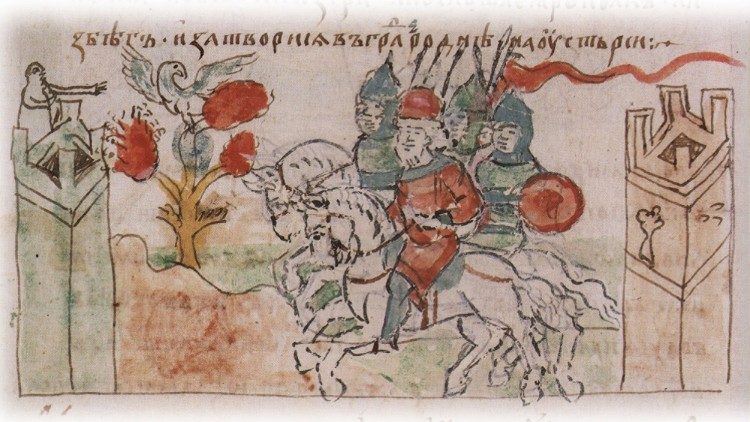 збѣгъ · и затворисѧ въ граⷣ роднѣ · на оусть рси :